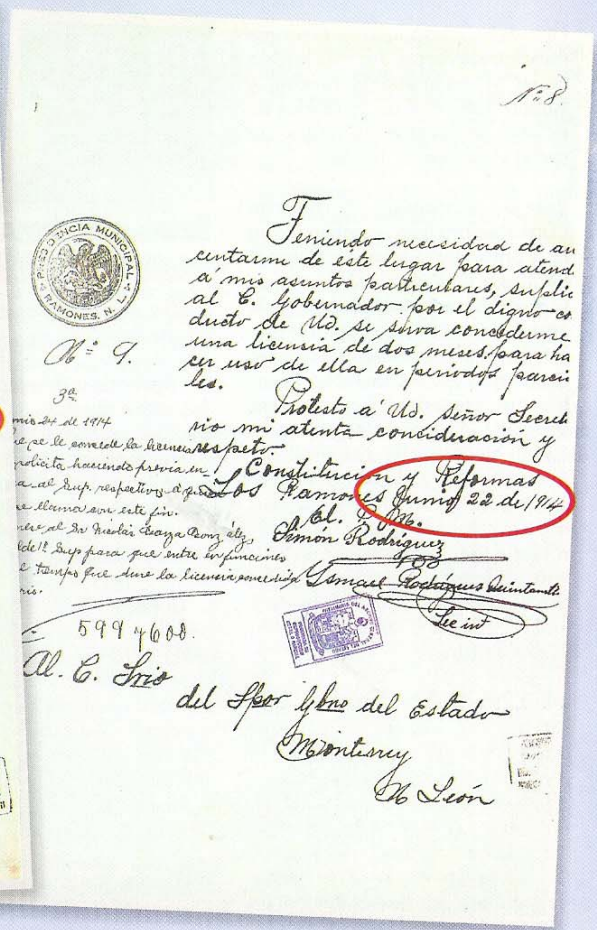 Nº 8.
PRESIDENCIA MUNICIPAL
RAMONES, N. L.
Teniendo necesidad de au
centarme de este lugar para atend
á mis asuntos particulares, suplic
al C. Gobernador por el digno co
ducto de Ud. se sirva concederme
una licensia de dos meses para ha
cer uso de ella en periodos parcia
les.
Protesto á Ud. Señor Secreta
rio mi atenta consideración y
respeto.
Constitución y Reformas
Los Ramones Junio 22 de 1914
El. P. M.
Simón Rodríguez
Ismael Rodríguez Quintanilla
Sec int
Nº 9.
3ª
nio 24 de 1914
e se le concede la licencia
solicita haciendo previa en
a al Sup. respectivo á quien
se llama con este fin.
al Sr Nicolás Garza González,
lde 1º Sup para que entre en funciones
el tiempo que dure la licencia concedida
rio.
599 y 600.
Al. C. Srio
del Spor Gbno del Estado
Monterrey
N León